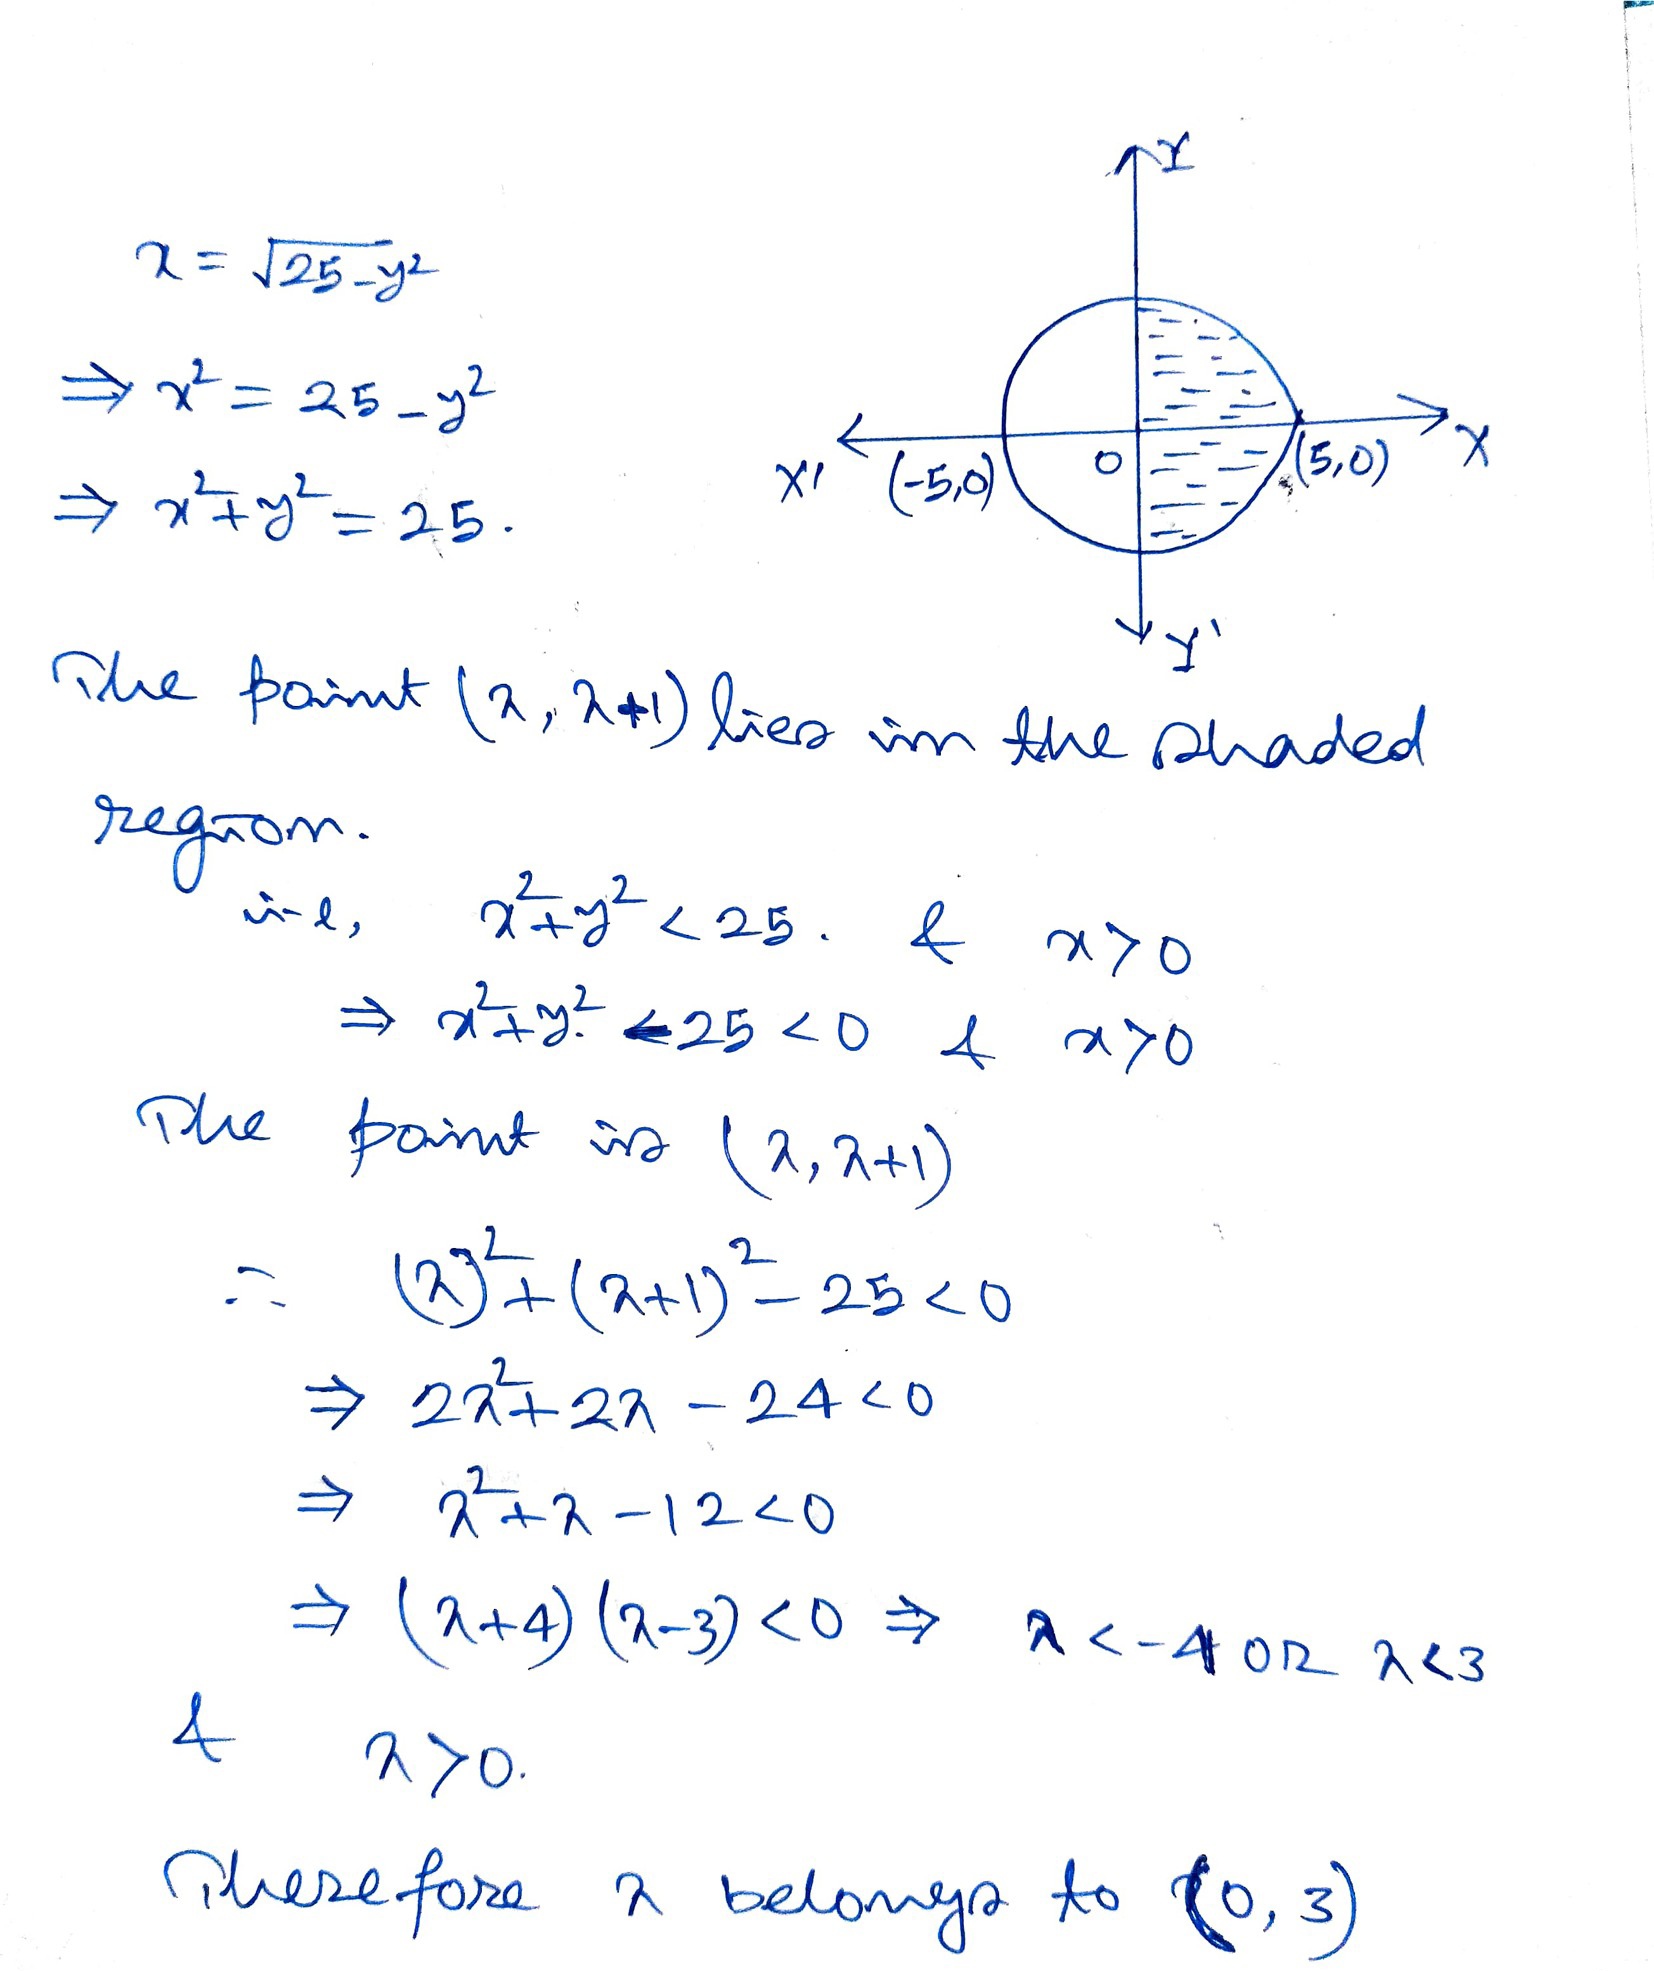 x = √25-y²
⇒ x² = 25 - y²
⇒ x² + y² = 25.
Y
X' (-5,0) O (5,0) X
Y'
The point (λ, λ+1) lies in the shaded
region.
i.e, x² + y² < 25. & x > 0
⇒ x² + y² - 25 < 0 & x > 0
The point is (λ, λ+1)
∴ (λ)² + (λ+1)² - 25 < 0
⇒ 2λ² + 2λ - 24 < 0
⇒ λ² + λ - 12 < 0
⇒ (λ+4) (λ-3) < 0 ⇒ λ < -4 OR λ < 3
& λ > 0.
Therefore λ belongs to (0, 3)